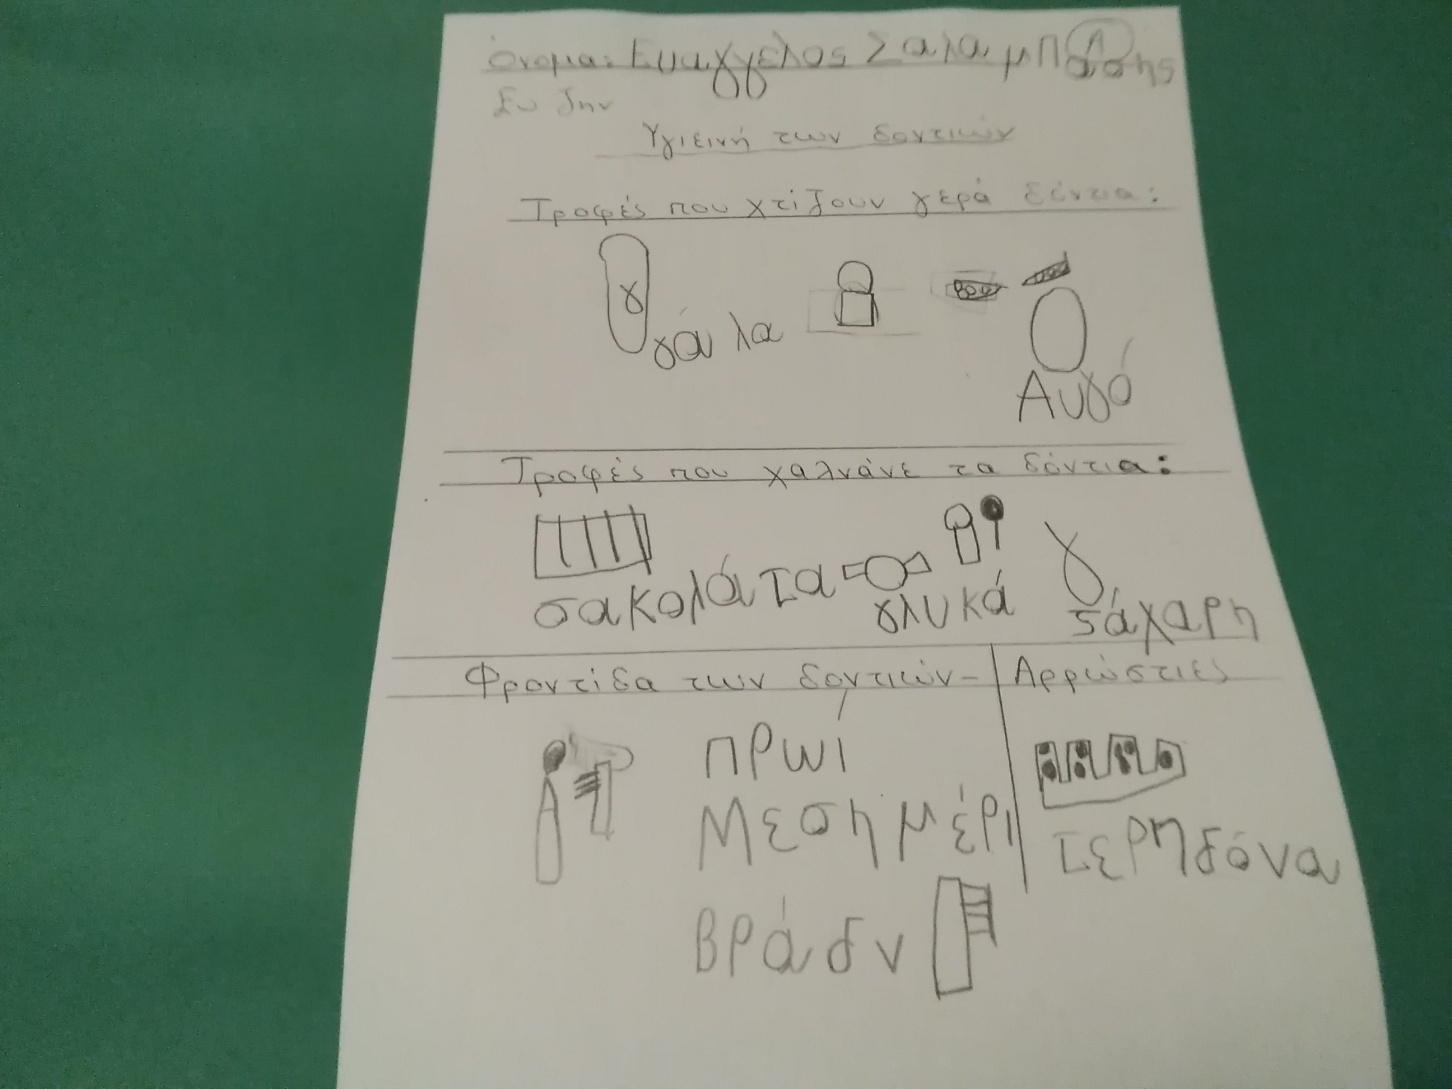 Όνομα: Ευαγγελος Σαλαμπάσης
Υγιεινή των δοντιών
Τροφές που χτίζουν γερά δόντια:
γάλα
Αυγό
Τροφές που χαλνάνε τα δόντια:
σακολάτα γλυκά σάχαρη
Φροντίδα των δοντιών - Αρρώστιες
πρωί
Μεσημέρι
τερηδόνα
βράδυ